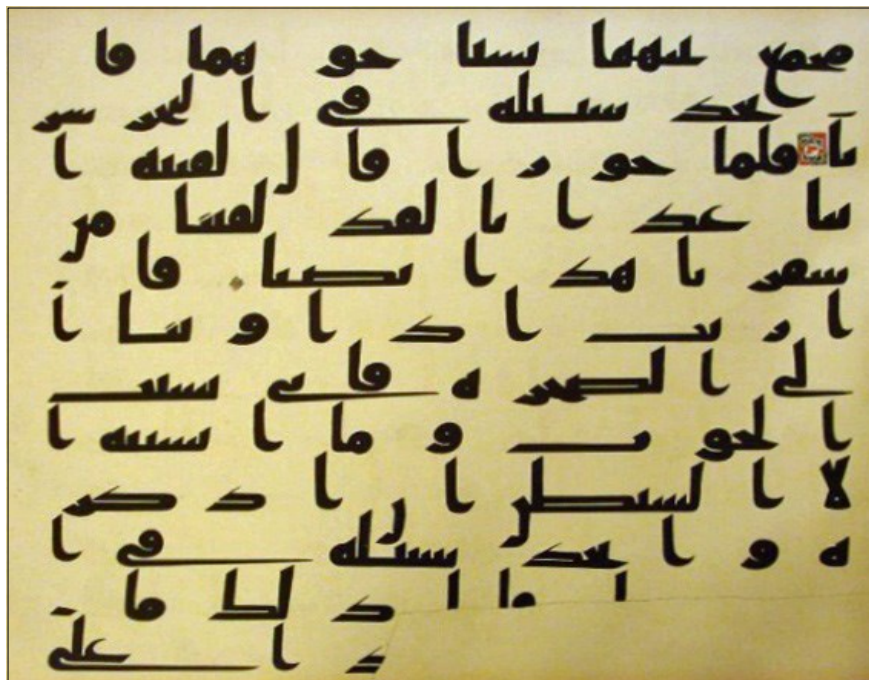 مجمع بينهما نسيا حوتهما فا
تخذ سبيله في البحر سر
با فلما جوزا قال لفتيه ا
تنا غدانا لقد لقينا من
سفرنا هذا نصبا قا
ل اريت اذ اوينا ا
لى الصخرة فاني نسيت
الحوت وما انسنيه ا
لا الشيطن ان اذكر
ه واتخذ سبيله في ا
ذلك ما
على